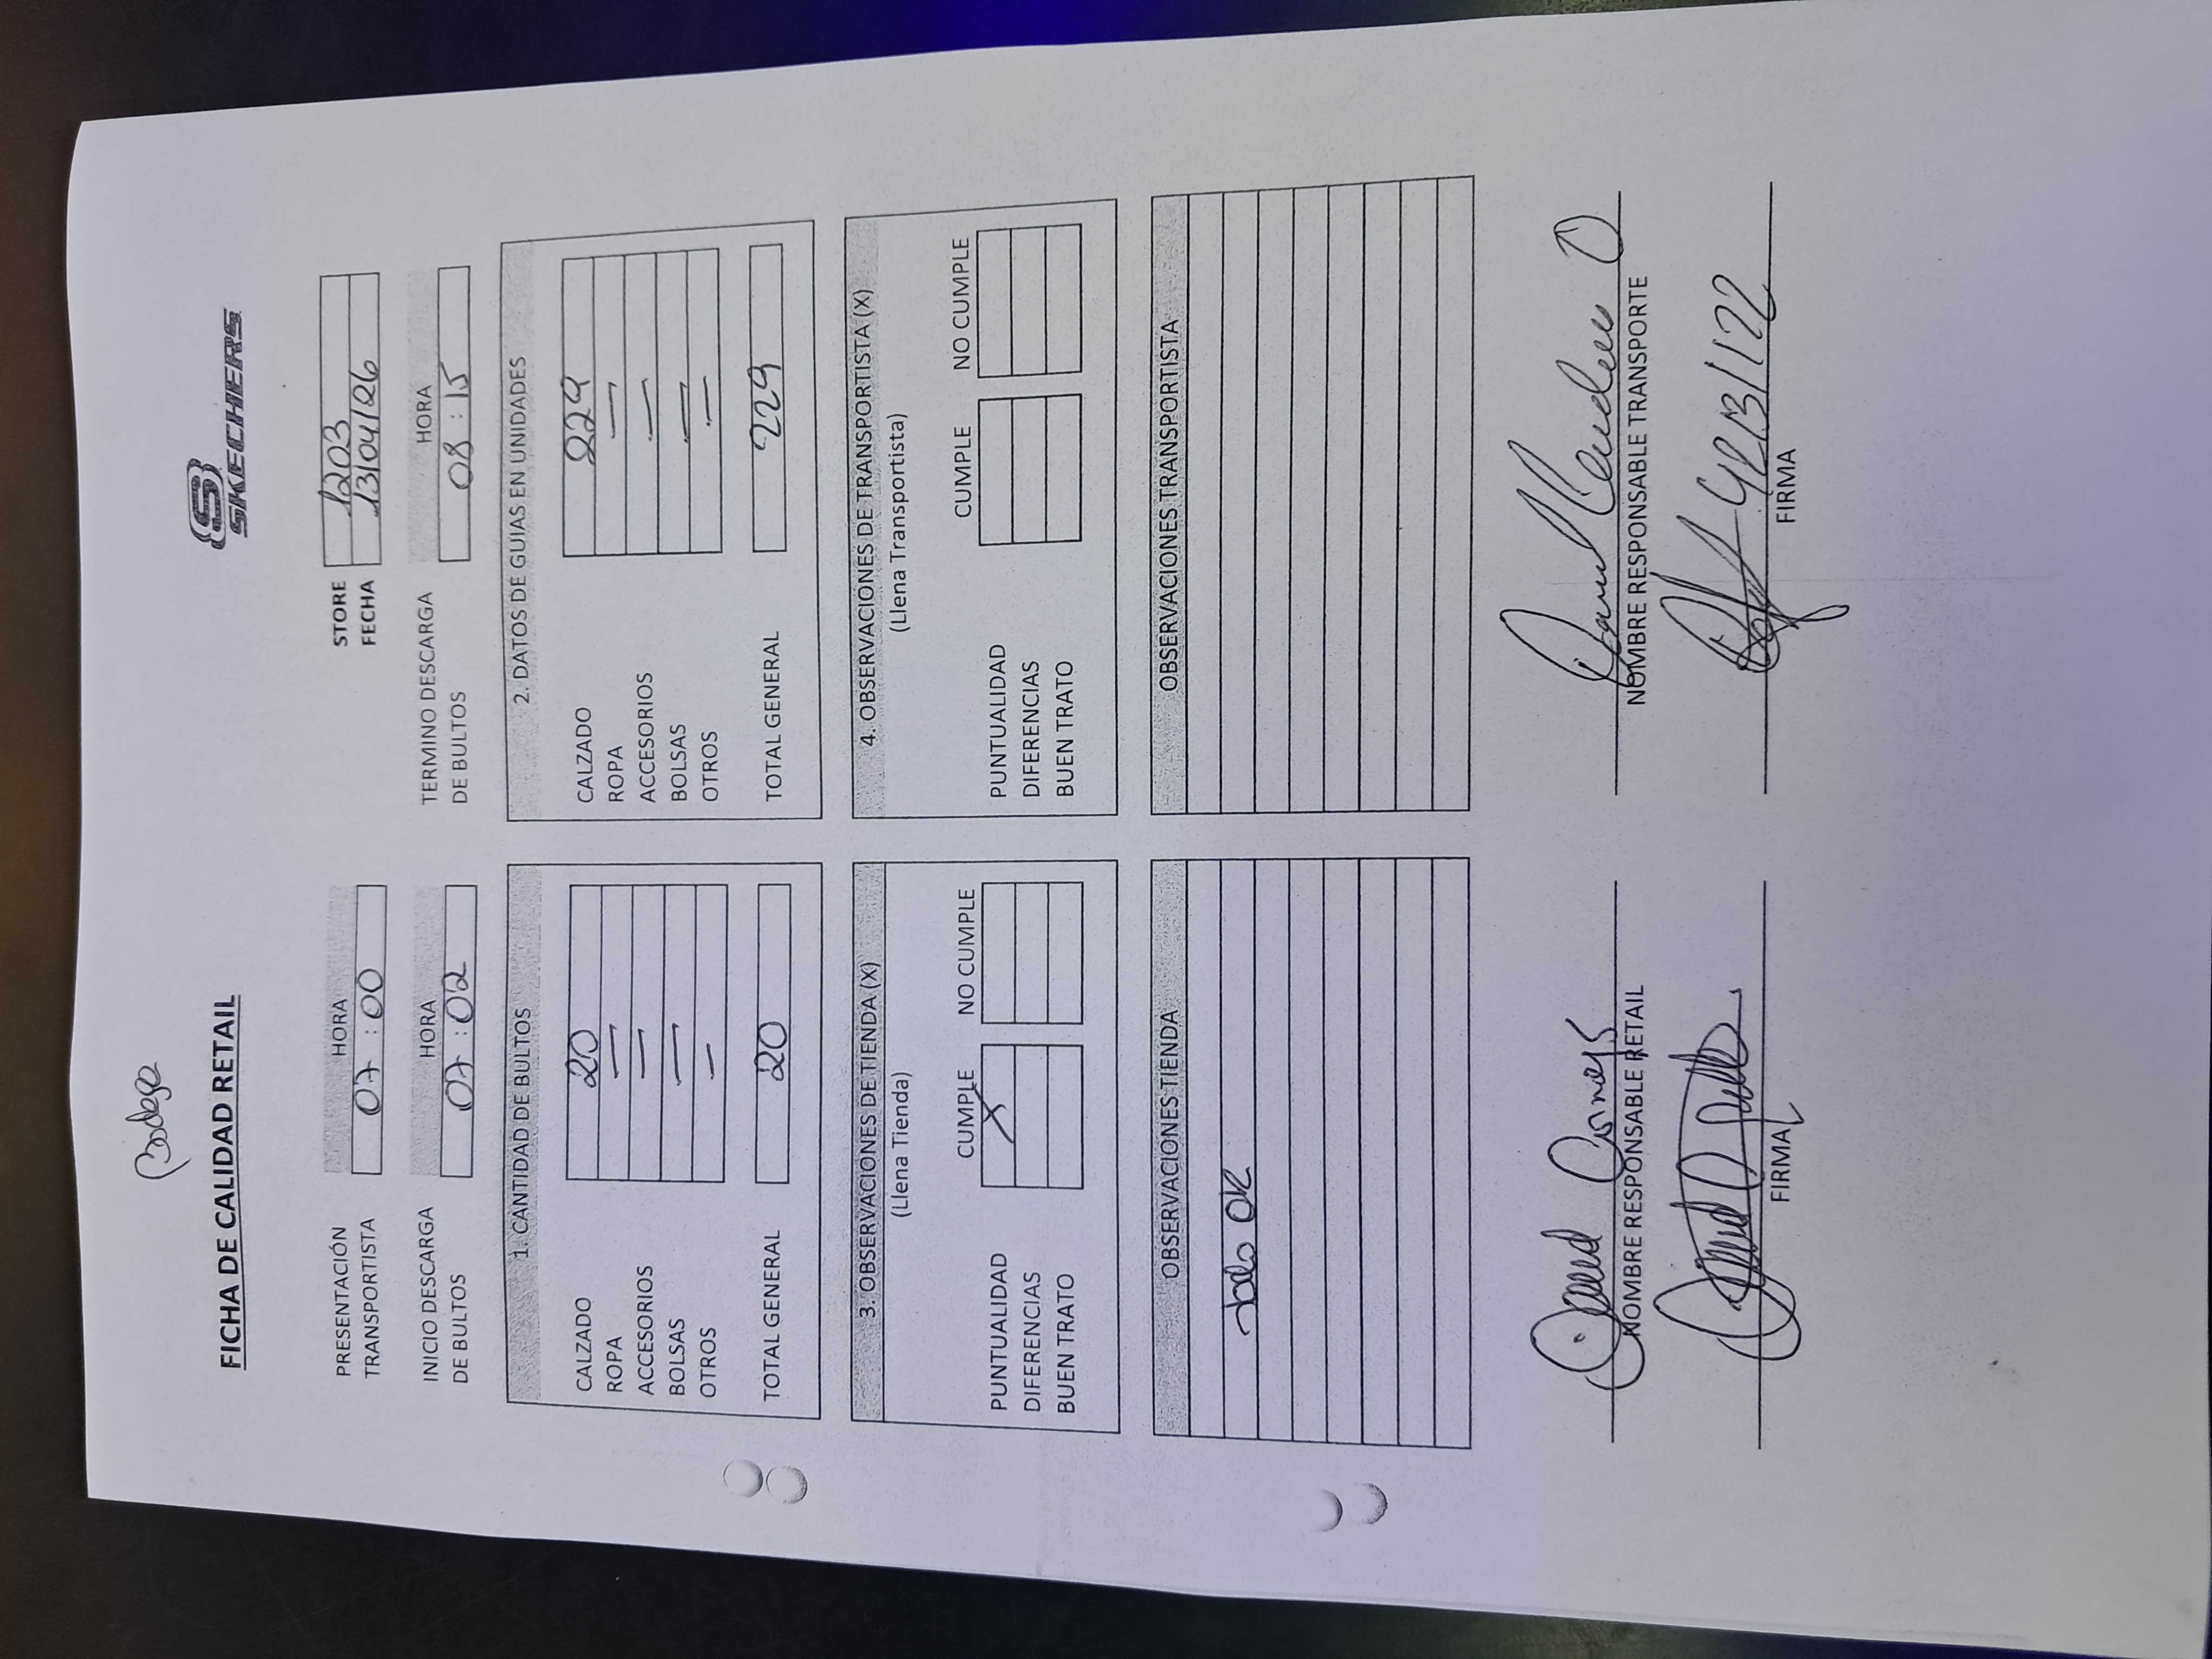 Bodega
FICHA DE CALIDAD RETAIL
SKECHERS
STORE 1203
FECHA 13/04/26
PRESENTACIÓN TRANSPORTISTA HORA 07:00
INICIO DESCARGA DE BULTOS HORA 07:02
TERMINO DESCARGA DE BULTOS HORA 08:15
1. CANTIDAD DE BULTOS
CALZADO 20
ROPA —
ACCESORIOS —
BOLSAS —
OTROS —
TOTAL GENERAL 20
2. DATOS DE GUIAS EN UNIDADES
CALZADO 229
ROPA —
ACCESORIOS —
BOLSAS —
OTROS —
TOTAL GENERAL 229
3. OBSERVACIONES DE TIENDA (X)
(Llena Tienda)
CUMPLE NO CUMPLE
PUNTUALIDAD X
DIFERENCIAS
BUEN TRATO
4. OBSERVACIONES DE TRANSPORTISTA (X)
(Llena Transportista)
CUMPLE NO CUMPLE
PUNTUALIDAD
DIFERENCIAS
BUEN TRATO
OBSERVACIONES TIENDA
todo OK
OBSERVACIONES TRANSPORTISTA
NOMBRE RESPONSABLE RETAIL
FIRMA
NOMBRE RESPONSABLE TRANSPORTE
FIRMA